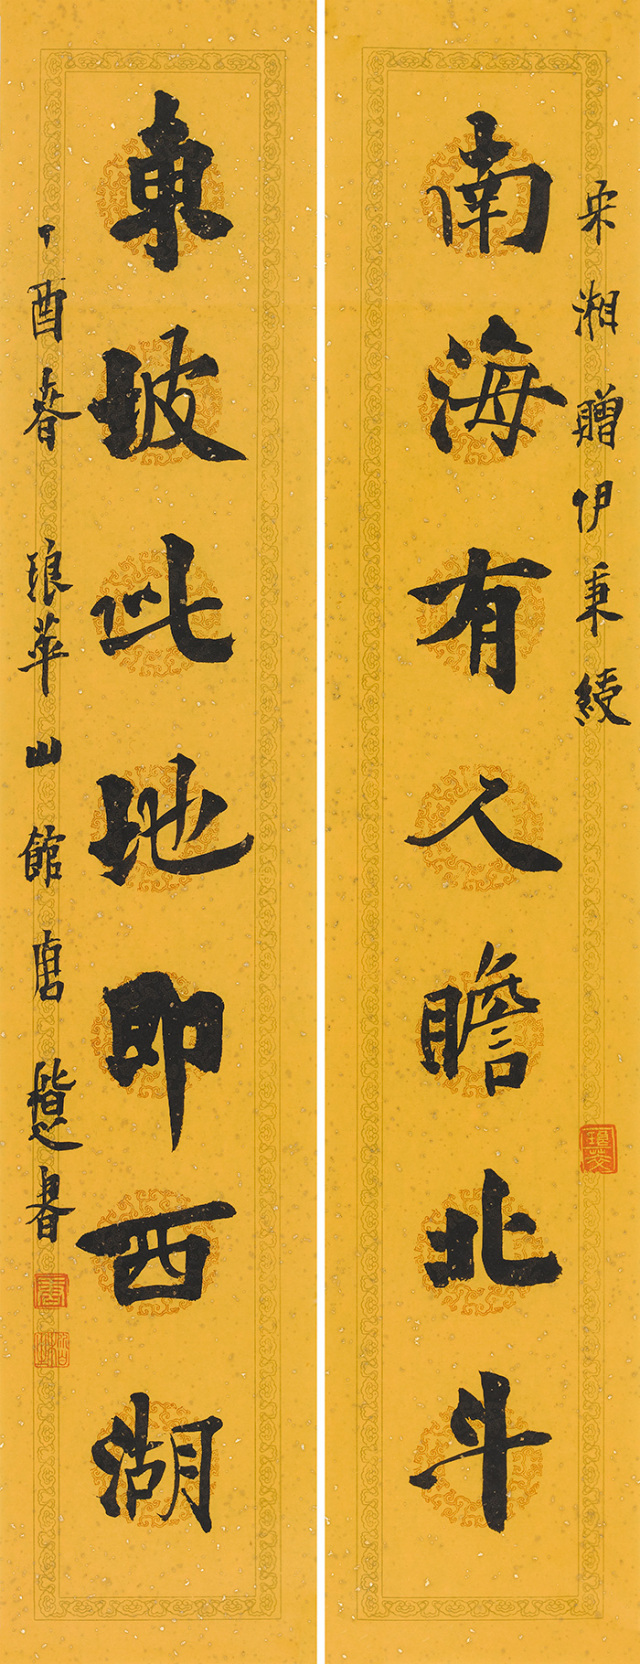 宋湘贈伊秉綬
南海有人瞻北斗
東坡此地即西湖
丁酉春 琅華山館 唐楷之書
唐
楷之